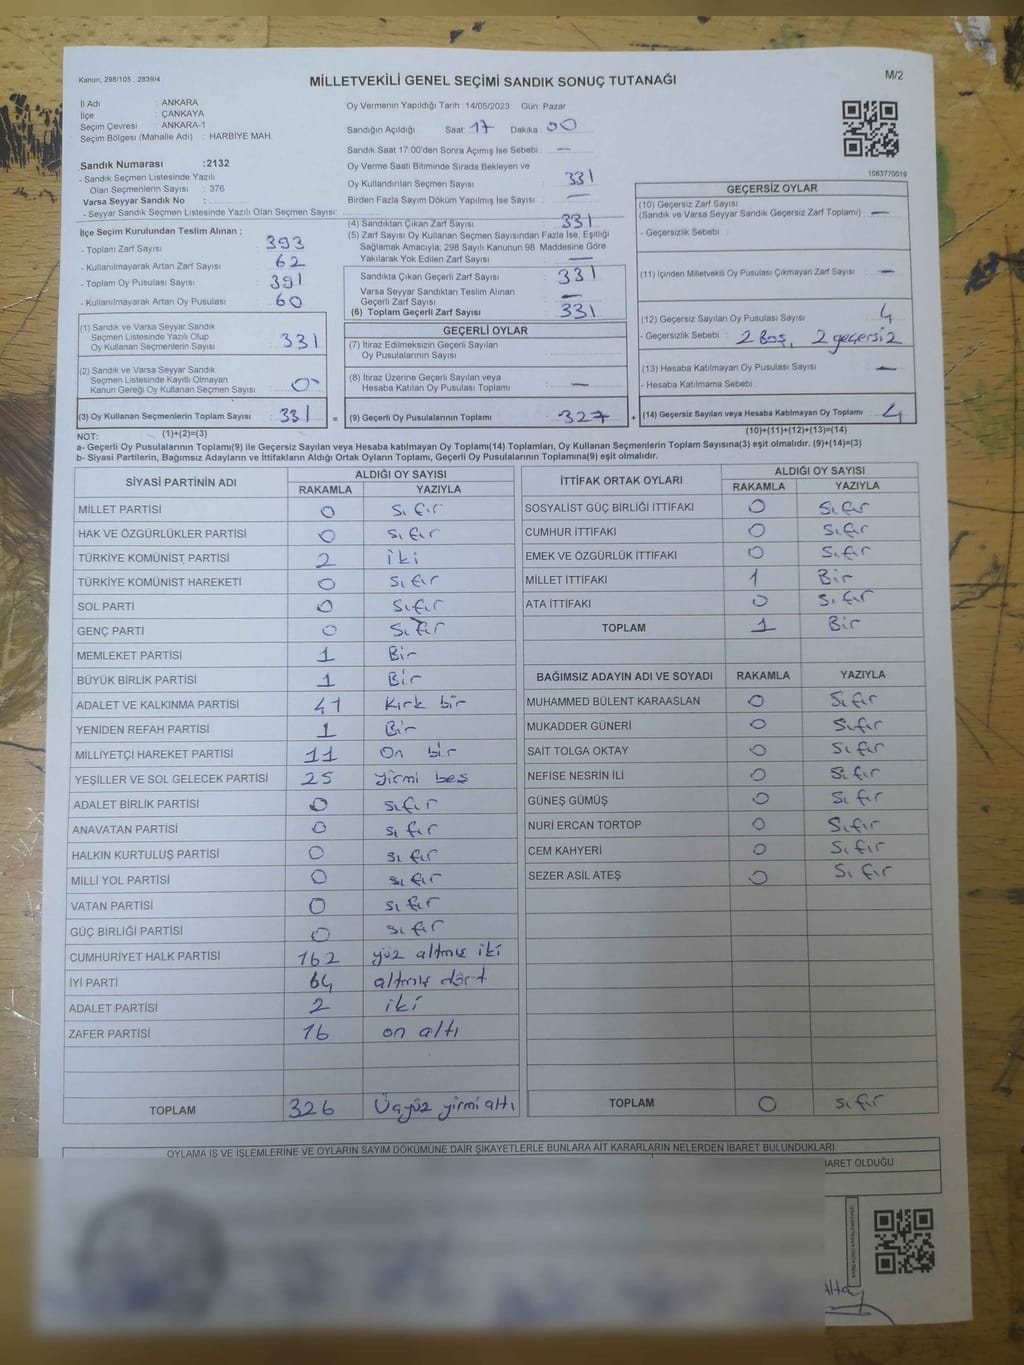 Kanun; 298/105 , 2839/4
MİLLETVEKİLİ GENEL SEÇİMİ SANDIK SONUÇ TUTANAĞI
M/2
İl Adı : ANKARA
İlçe : ÇANKAYA
Seçim Çevresi : ANKARA-1
Seçim Bölgesi (Mahalle Adı) : HARBİYE MAH.
Sandık Numarası :2132
- Sandık Seçmen Listesinde Yazılı
Olan Seçmenlerin Sayısı : 376
Varsa Seyyar Sandık No :
- Seyyar Sandık Seçmen Listesinde Yazılı Olan Seçmen Sayısı:
İlçe Seçim Kurulundan Teslim Alınan ;
- Toplam Zarf Sayısı : 393
- Kullanılmayarak Artan Zarf Sayısı : 62
- Toplam Oy Pusulası Sayısı : 391
- Kullanılmayarak Artan Oy Pusulası : 60
(1) Sandık ve Varsa Seyyar Sandık
Seçmen Listesinde Yazılı Olup
Oy Kullanan Seçmenlerin Sayısı : 331
(2) Sandık ve Varsa Seyyar Sandık
Seçmen Listesinde Kayıtlı Olmayan
Kanun Gereği Oy Kullanan Seçmen Sayısı : 0
(3) Oy Kullanan Seçmenlerin Toplam Sayısı : 331 =
(1)+(2)=(3)
Oy Vermenin Yapıldığı Tarih : 14/05/2023 Gün: Pazar
Sandığın Açıldığı Saat: 17 Dakika : 00
Sandık Saat 17:00'den Sonra Açımış İse Sebebi : —
Oy Verme Saati Bitiminde Sırada Bekleyen ve
Oy Kullandırılan Seçmen Sayısı : 331
Birden Fazla Sayım Döküm Yapılmış İse Sayısı : —
(4) Sandıktan Çıkan Zarf Sayısı : 331
(5) Zarf Sayısı Oy Kullanan Seçmen Sayısından Fazla İse, Eşitliği
Sağlamak Amacıyla; 298 Sayılı Kanunun 98 Maddesine Göre
Yakılarak Yok Edilen Zarf Sayısı : —
Sandıkta Çıkan Geçerli Zarf Sayısı : 331
Varsa Seyyar Sandıktan Teslim Alınan
Geçerli Zarf Sayısı : —
(6) Toplam Geçerli Zarf Sayısı : 331
GEÇERLİ OYLAR
(7) İtiraz Edilmeksizin Geçerli Sayılan
Oy Pusulalarının Sayısı :
(8) İtiraz Üzerine Geçerli Sayılan veya
Hesaba Katılan Oy Pusulası Toplamı : —
(9) Geçerli Oy Pusulalarının Toplamı : 327 +
1083770019
GEÇERSİZ OYLAR
(10) Geçersiz Zarf Sayısı
(Sandık ve Varsa Seyyar Sandık Geçersiz Zarf Toplamı) : —
- Geçersizlik Sebebi :
(11) İçinden Milletvekili Oy Pusulası Çıkmayan Zarf Sayısı : —
(12) Geçersiz Sayılan Oy Pusulası Sayısı : 4
- Geçersizlik Sebebi : 2 Boş, 2 geçersiz
(13) Hesaba Katılmayan Oy Pusulası Sayısı : —
- Hesaba Katılmama Sebebi :
(14) Geçersiz Sayılan veya Hesaba Katılmayan Oy Toplamı : 4
(10)+(11)+(12)+(13)=(14)
NOT:
a- Geçerli Oy Pusulalarının Toplamı(9) ile Geçersiz Sayılan veya Hesaba katılmayan Oy Toplamı(14) Toplamları, Oy Kullanan Seçmenlerin Toplam Sayısına(3) eşit olmalıdır. (9)+(14)=(3)
b- Siyasi Partilerin, Bağımsız Adayların ve İttifakların Aldığı Ortak Oyların Toplamı, Geçerli Oy Pusulalarının Toplamına(9) eşit olmalıdır.
SİYASİ PARTİNİN ADI ALDIĞI OY SAYISI
RAKAMLA YAZIYLA
MİLLET PARTİSİ 0 Sıfır
HAK VE ÖZGÜRLÜKLER PARTİSİ 0 Sıfır
TÜRKİYE KOMÜNİST PARTİSİ 2 iki
TÜRKİYE KOMÜNİST HAREKETİ 0 Sıfır
SOL PARTİ 0 Sıfır
GENÇ PARTİ 0 Sıfır
MEMLEKET PARTİSİ 1 Bir
BÜYÜK BİRLİK PARTİSİ 1 Bir
ADALET VE KALKINMA PARTİSİ 41 Kırk bir
YENİDEN REFAH PARTİSİ 1 Bir
MİLLİYETÇİ HAREKET PARTİSİ 11 On bir
YEŞİLLER VE SOL GELECEK PARTİSİ 25 yirmi beş
ADALET BİRLİK PARTİSİ 0 sıfır
ANAVATAN PARTİSİ 0 sıfır
HALKIN KURTULUŞ PARTİSİ 0 sıfır
MİLLİ YOL PARTİSİ 0 sıfır
VATAN PARTİSİ 0 sıfır
GÜÇ BİRLİĞİ PARTİSİ 0 sıfır
CUMHURİYET HALK PARTİSİ 162 yüz altmış iki
İYİ PARTİ 64 altmış dört
ADALET PARTİSİ 2 iki
ZAFER PARTİSİ 16 on altı
TOPLAM 326 Üçyüz yirmi altı
İTTİFAK ORTAK OYLARI ALDIĞI OY SAYISI
RAKAMLA YAZIYLA
SOSYALİST GÜÇ BİRLİĞİ İTTİFAKI 0 Sıfır
CUMHUR İTTİFAKI 0 Sıfır
EMEK VE ÖZGÜRLÜK İTTİFAKI 0 Sıfır
MİLLET İTTİFAKI 1 Bir
ATA İTTİFAKI 0 Sıfır
TOPLAM 1 Bir
BAĞIMSIZ ADAYIN ADI VE SOYADI RAKAMLA YAZIYLA
MUHAMMED BÜLENT KARAASLAN 0 Sıfır
MUKADDER GÜNERİ 0 Sıfır
SAİT TOLGA OKTAY 0 Sıfır
NEFİSE NESRİN İLİ 0 Sıfır
GÜNEŞ GÜMÜŞ 0 Sıfır
NURİ ERCAN TORTOP 0 Sıfır
CEM KAHYERİ 0 Sıfır
SEZER ASİL ATEŞ 0 Sıfır
TOPLAM 0 sıfır
OYLAMA İŞ VE İŞLEMLERİNE VE OYLARIN SAYIM DÖKÜMÜNE DAİR ŞİKAYETLERLE BUNLARA AİT KARARLARIN NELERDEN İBARET BULUNDUKLARI
BARET OLDUĞU